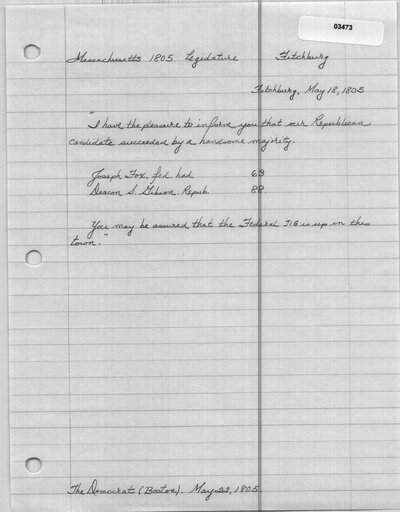 03473
Massachusetts 1805 Legislature Fitchburg
Fitchburg, May 18, 1805
"I have the pleasure to inform you that our Republican
candidate succeeded by a handsome majority.
Joseph Fox, fed. had 63
Deacon S. Gibson, Repub. 88.
You may be assured that the Federal JIG is up in this
town."
The Democrat (Boston). May 22, 1805.